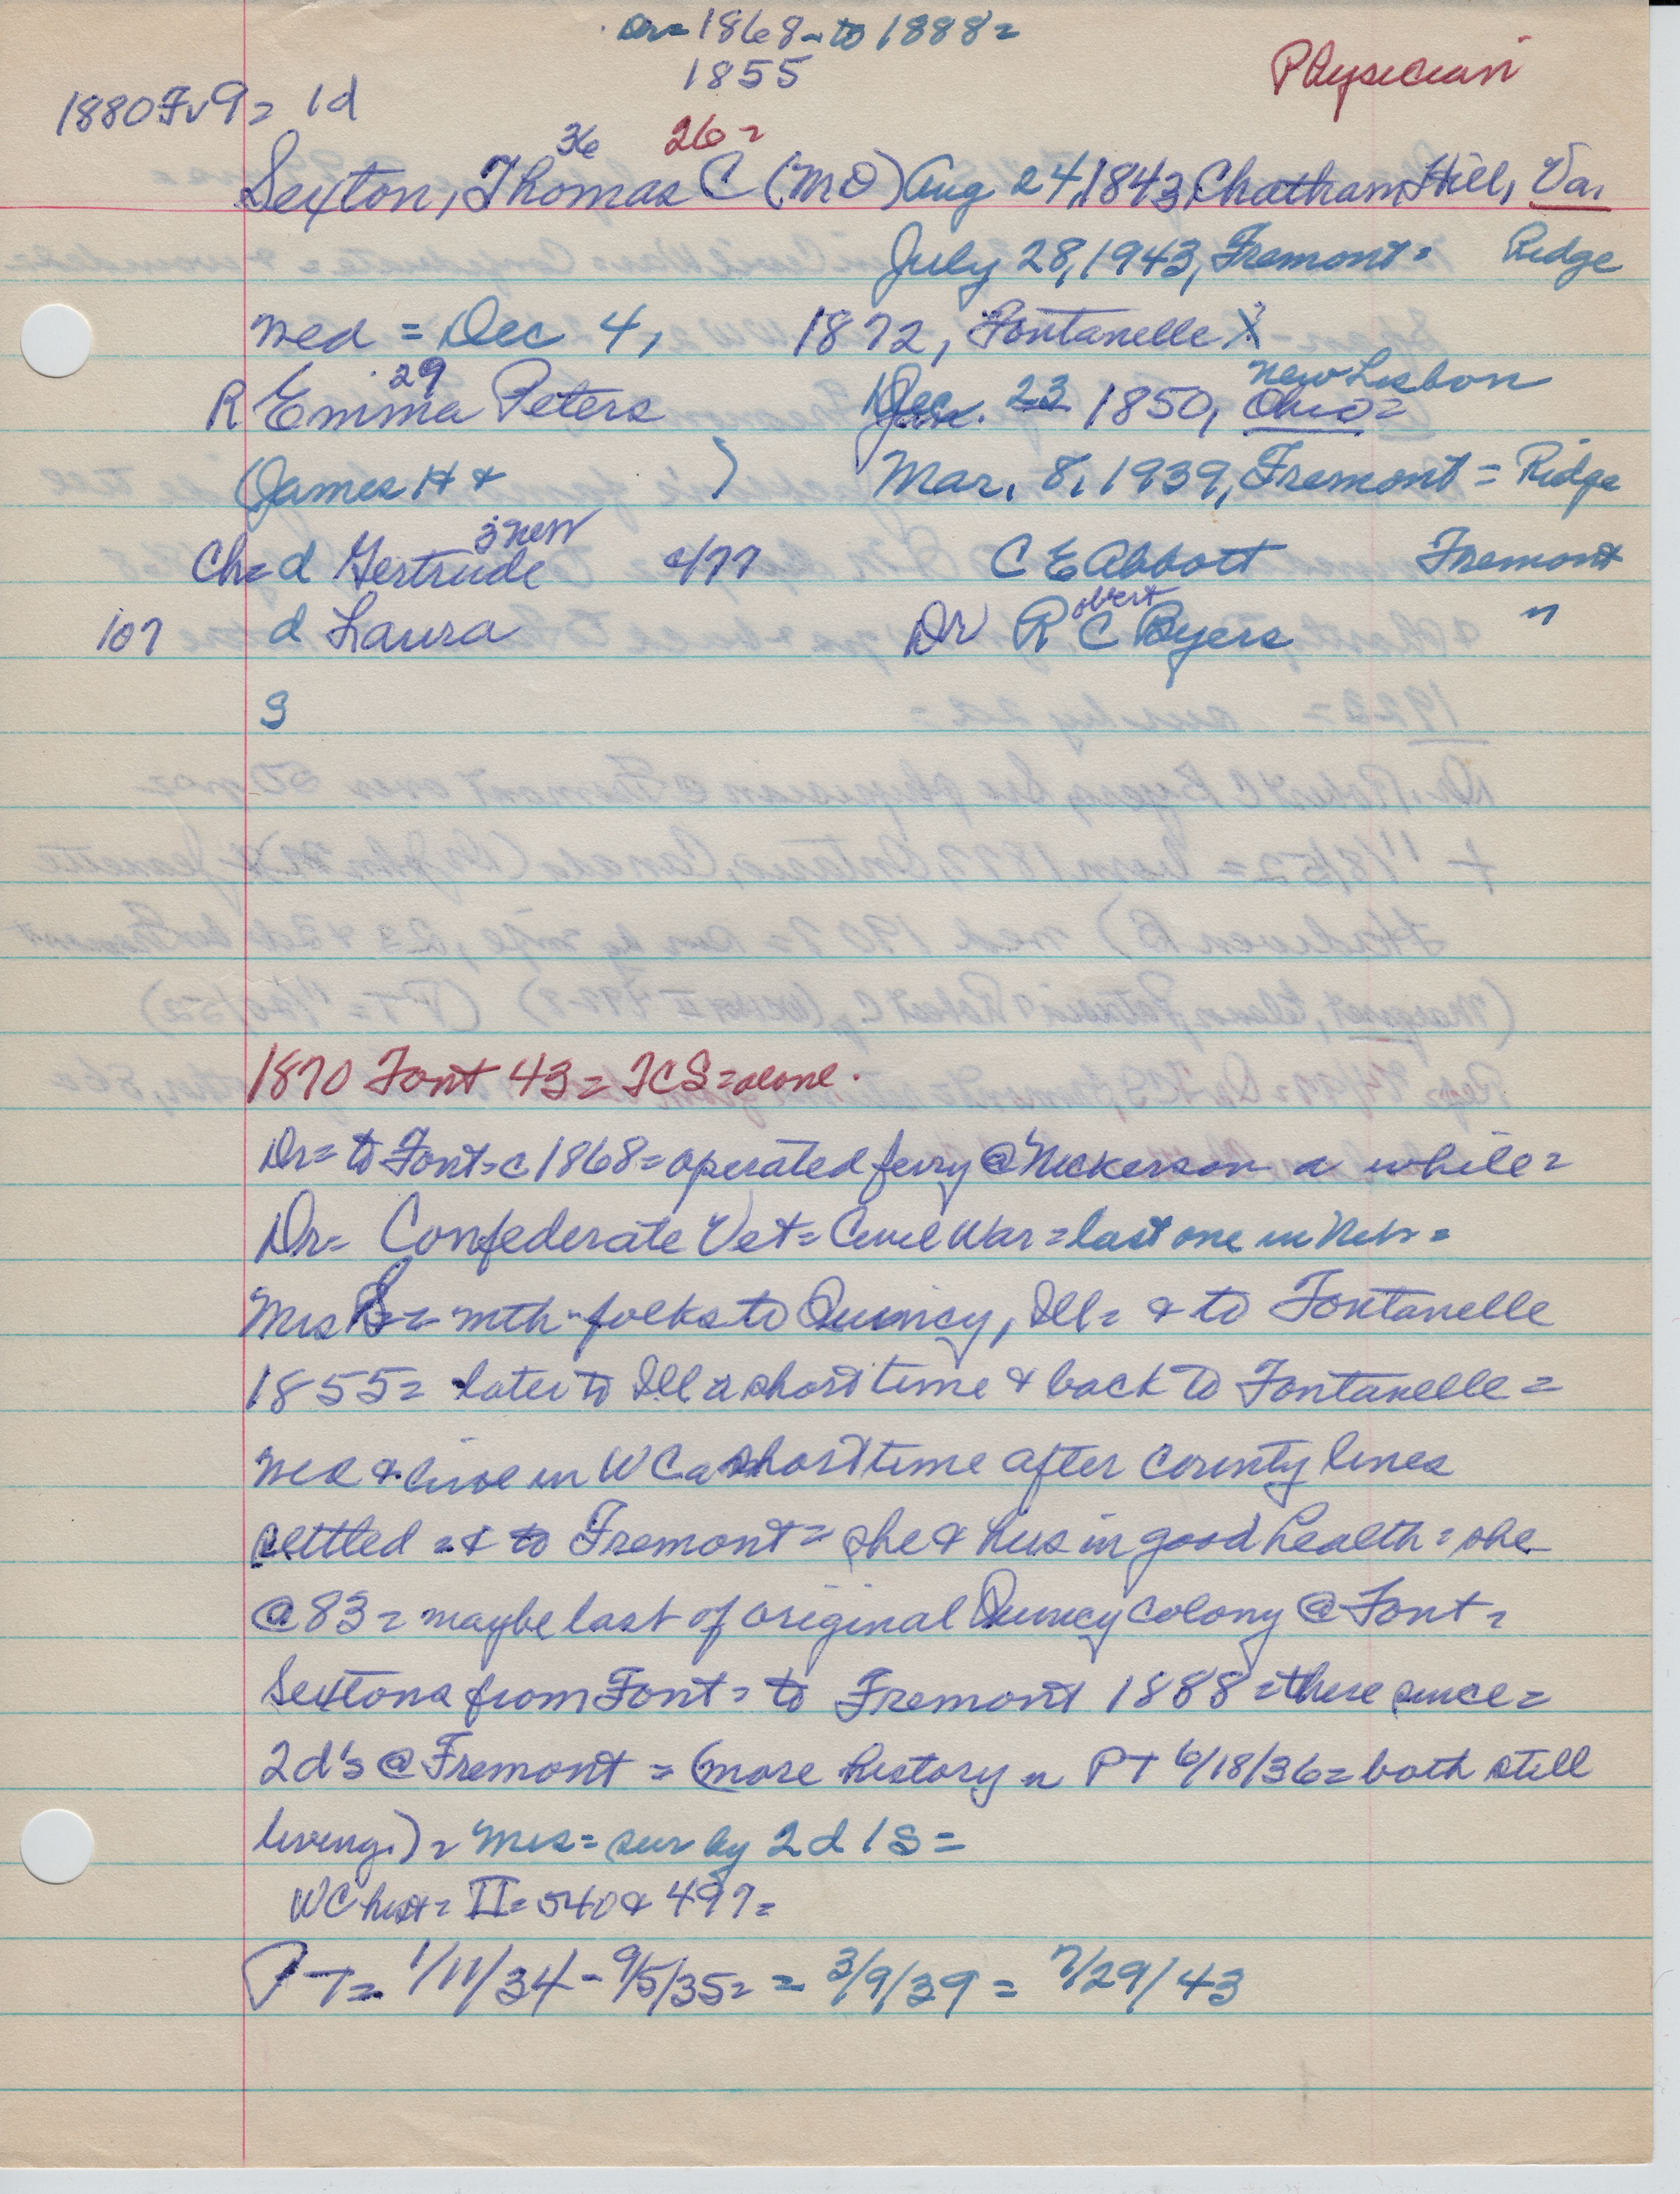 Dr= 1868 - to 1888=
1855
Physician
1880 Fv 9= 1d
36 26=
Sexton, Thomas C (MD) Aug 24, 1843, Chatham Hill, Va.
July 28, 1943, Fremont= Ridge
med = Dec 4, 1872, Fontanelle X?
29 New Lisbon
R Emma Peters Dec. 23 1850, Ohio=
(James H & ) Mar. 8, 1939, Fremont = Ridge
3 Neb
Ch= d Gertrude c/77 C E Abbott Fremont
107 d Laura Dr Robert C Byers "
S
1870 Font 43= TCS= alone.
Dr= to Font= c 1868= operated ferry @ Nickerson a while=
Dr= Confederate Vet= Civil War= last one in Neb=
Mrs S= mth- folks to Quincy, Ill= & to Fontanelle
1855= later to Ill a short time & back to Fontanelle=
med & live in WC a short time after county lines
settled = & to Fremont= she & hus in good health= she
@ 83= maybe last of original Quincy Colony @ Font=
Sextons from Font= to Fremont 1888= there since=
2 d's @ Fremont = (more history in PT 6/18/36= both still
living.)= Mrs= sur by 2d 1S=
WC hist= II= 540 & 497=
PT= 1/11/34 - 9/5/35= = 3/9/39 = 7/29/43